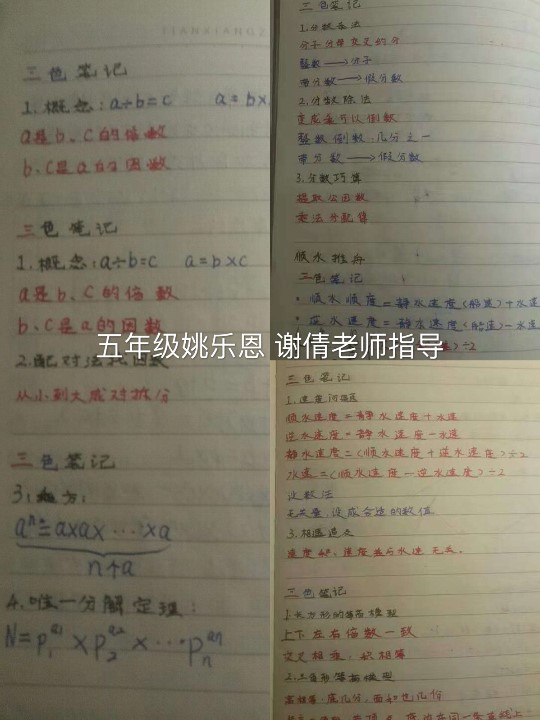 TIANXIANGZ
三色笔记
1.概念:a÷b=c a=b×
a是b、c的倍数
b、c是a的因数
三色笔记
1.概念:a÷b=c a=b×c
a是b、c的倍数
b、c是a的因数
2.配对法找因数
从小到大成对拆分
三色笔记
3.乘方:
aⁿ=a×a× … ×a
n个a
4.唯一分解定理:
N=p₁^a1×p₂^a2×…pₙ^an
三色笔记
1.分数乘法
分子分母交叉约分
整数→分子
带分数→假分数
2.分数除法
变成乘可以倒数
整数倒数:几分之一
带分数→假分数
3.分数巧算
提取公因数
乘法分配律
顺水推舟
三色笔记
•顺水顺度=静水速度(船速)+水速
•逆水速度=静水速度(船速)-水速
)÷2
五年级姚乐恩 谢倩老师指导
三色笔记
1.速度问题
顺水速度=静水速度+水速
逆水速度=静水速度-水速
静水速度=(顺水速度+逆水速度)÷2
水速=(顺水速度-逆水速度)÷2
设数法
无关量,设成合适的数值
3.相遇追及
速度和,速度差与水速无关。
三色笔记
1.长方形的等高模型
上下左右倍数一致
交叉相乘,积相等
2.三角形等高模型
高相等,底几分,面积也几份